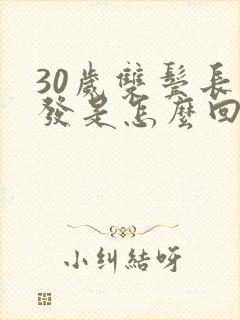 30歲雙鬢長
發是怎麼回
小纠結呀